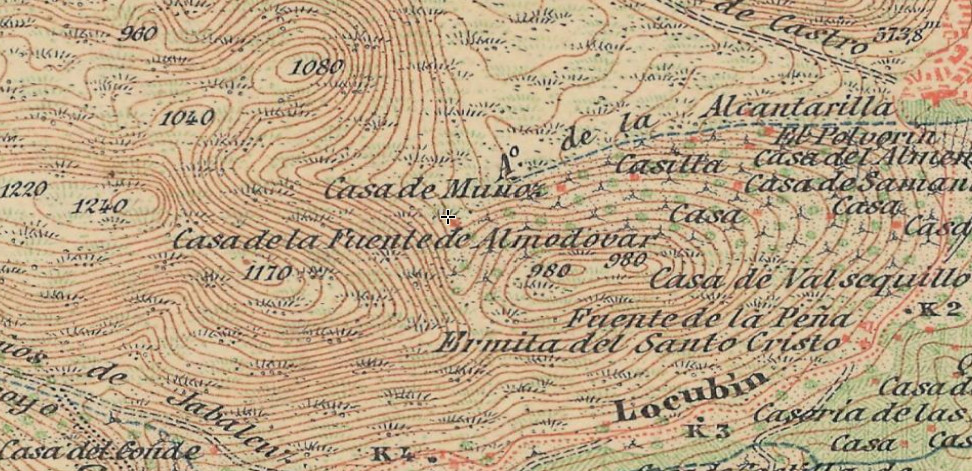 de Castro
960
573,8 m
1080
1040
Alcantarilla
Aº. de la
El Polvorin
Casilla
Casa del
Casa de Muñoz
Casa de
1220
1240
Casa
Casa
Casa
Casa de la Fuente de Almodovar
1170
980
980
Casa de Valsequillo
K 2
Fuente de la Peña
Ermita del Santo Cristo
de
Jabalcuz
Locubin
Casa d
K 3
Caseria de las
Casa del Conde
K 4
Casa